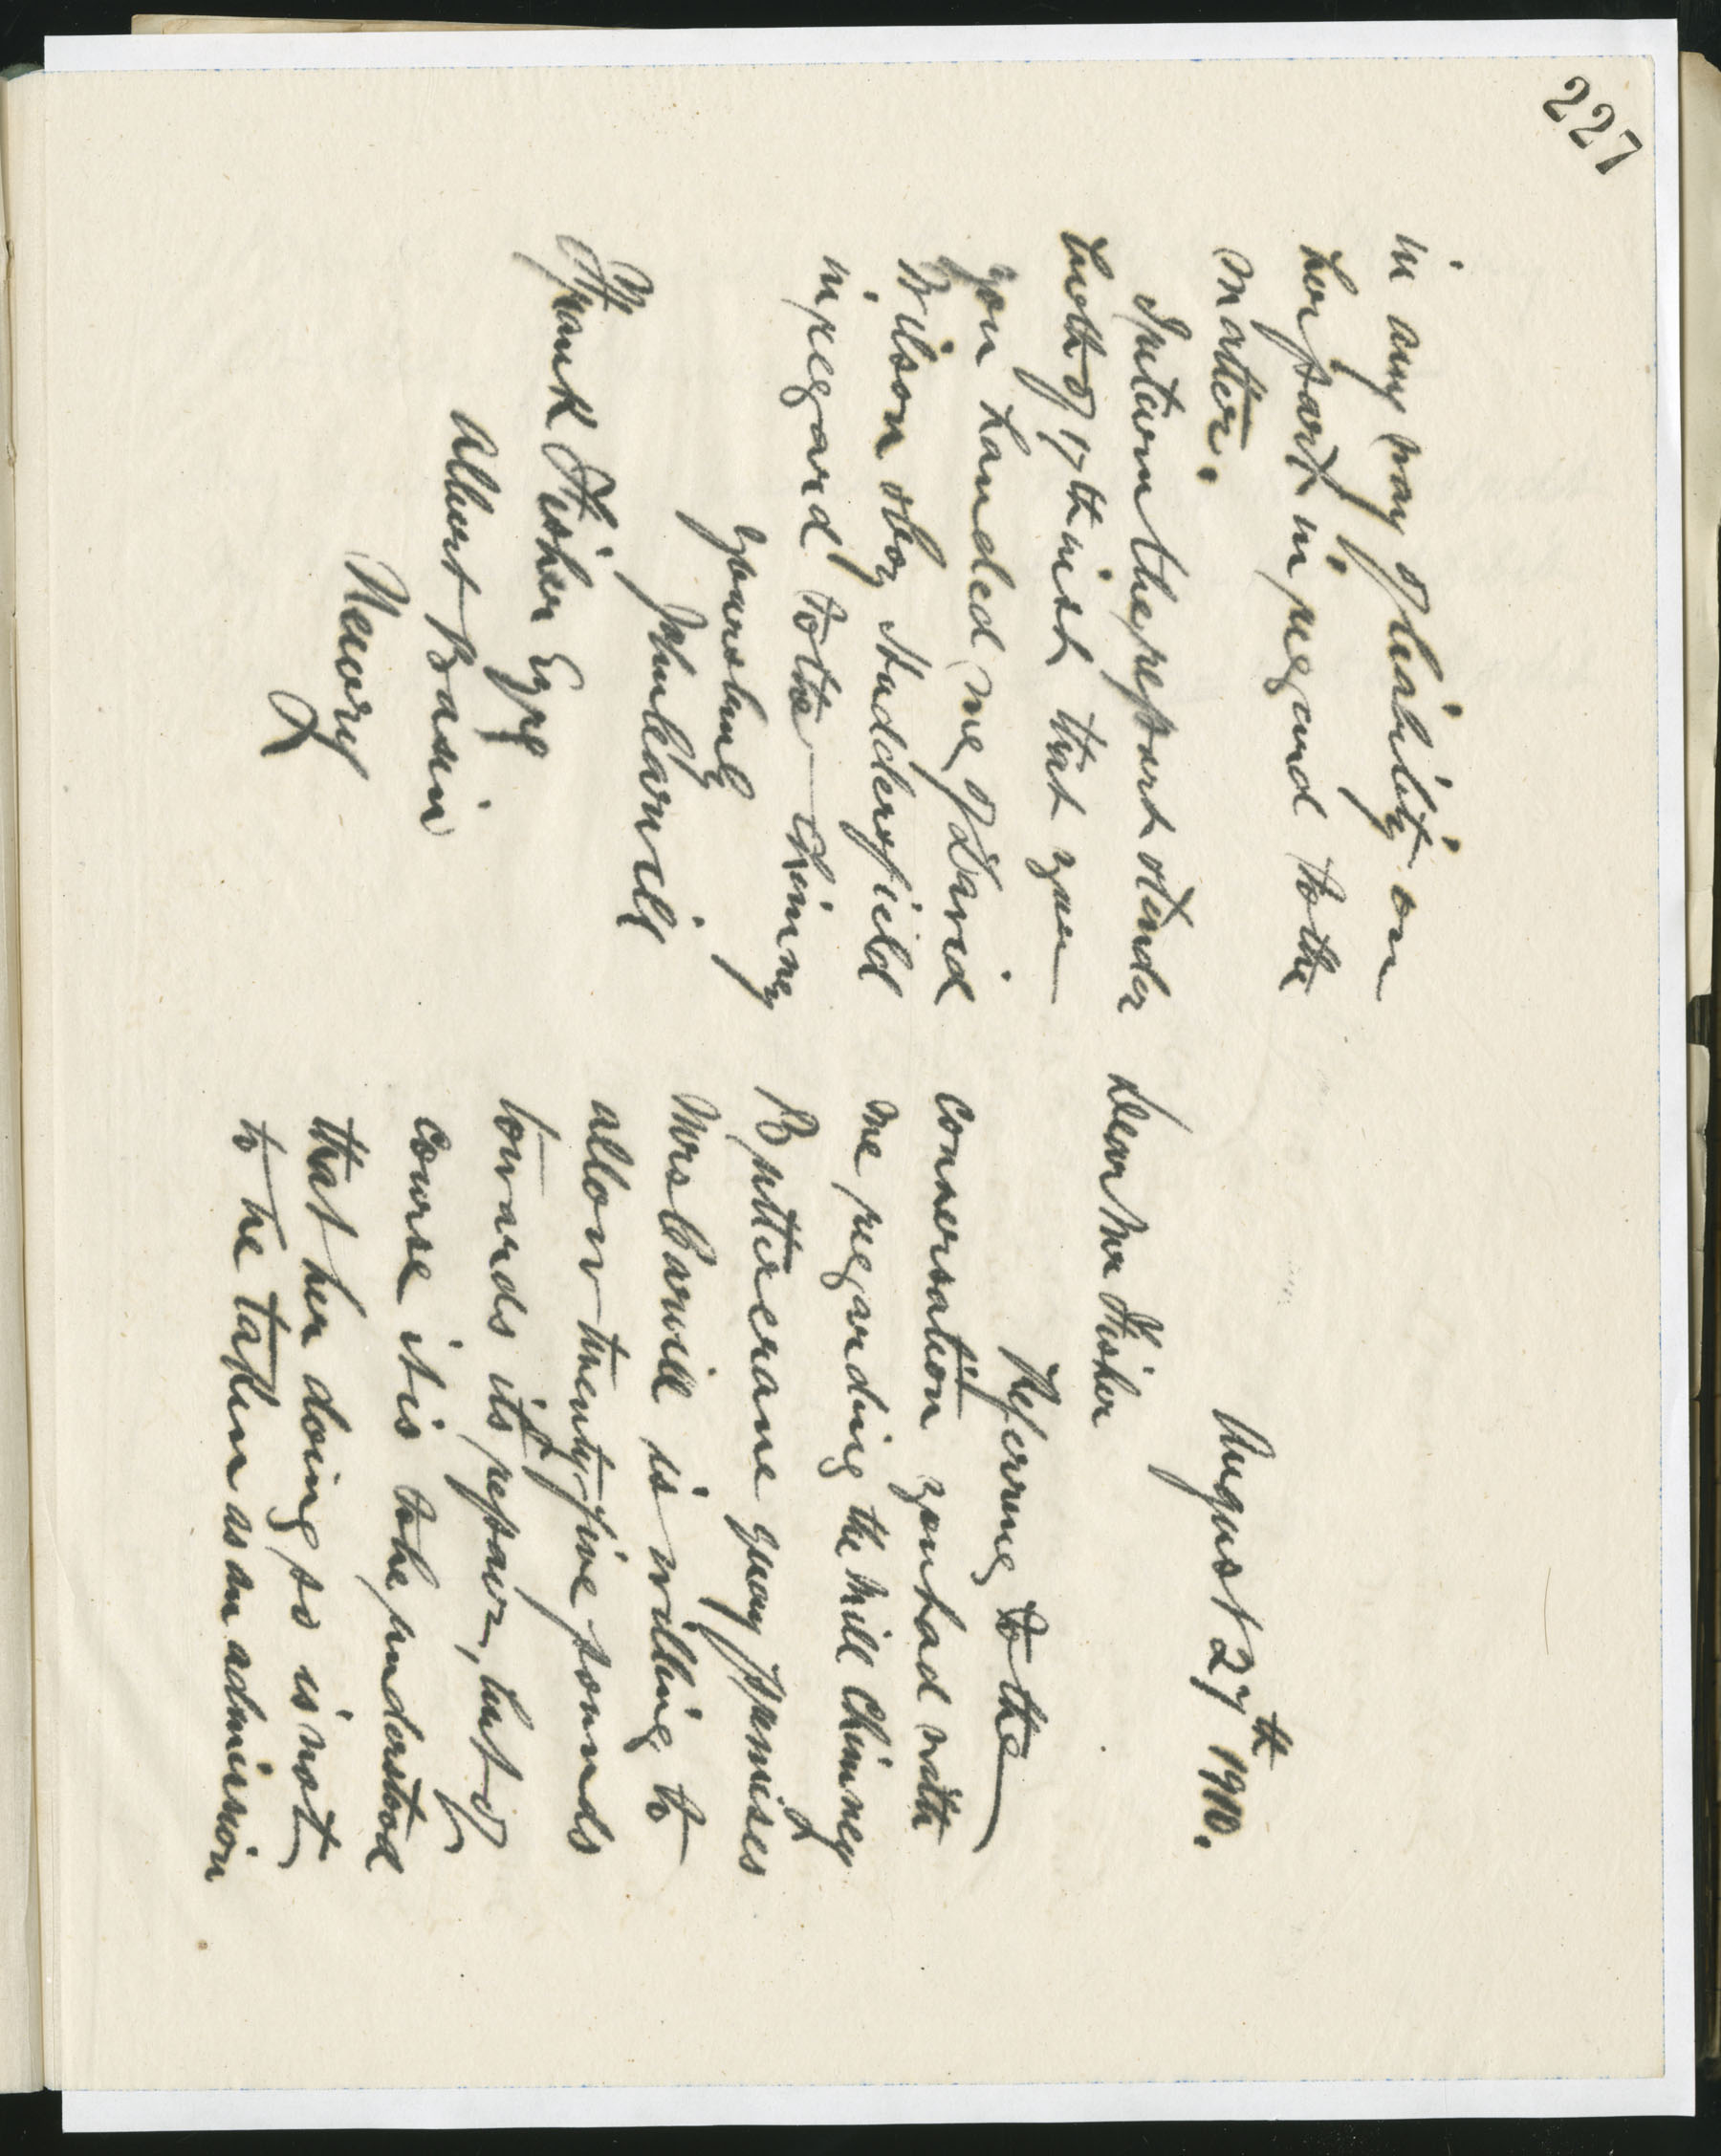 227
August 27th 1910.
Dear Mr Fisher
Referring to the
conversation you had with
me regarding the mill chimney
Buttercrane quay premises
Mrs Carvill is willing to
allow twenty-five pounds
towards its repair, but of
course it is to be understood
that her doing so is not
to be taken as an admission
in any way of liability on
her part in regard to the
matter.
I return the report under
of 17th inst that you
you handed me of David
Wilson Huddersfield
in regard to the chimney
Yours truly
John Carvill
Frank Fisher Esqre
Albert Basin
Newry